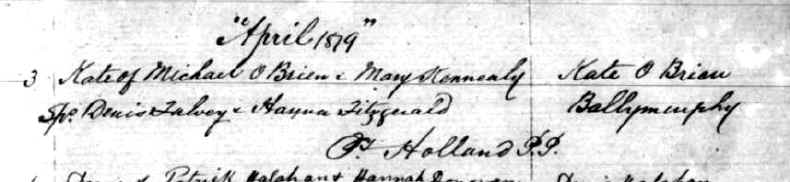 "April 1879"
3 Kate of Michael O Brien & Mary Kennealy Kate O Brien
Sps. Denis Falvey & Hanna Fitzgerald Ballymurphy
Pt. Holland P.P.
Patrick & Hannah Donovan